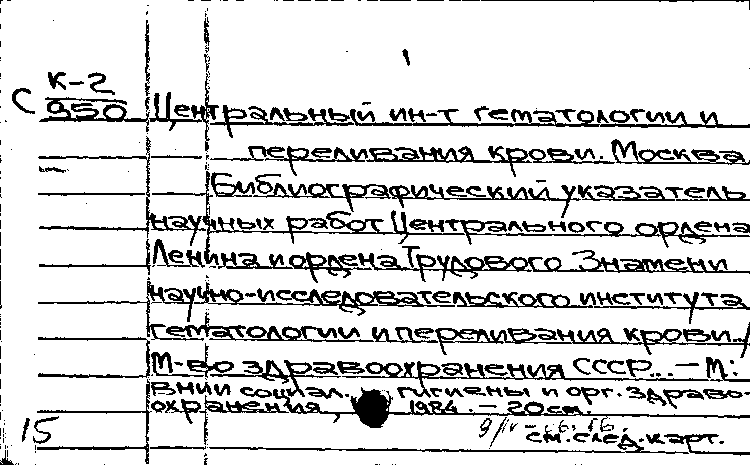 К-2
С 950 Центральный ин-т гематологии и
переливания крови. Москва
Библиографический указатель
научных работ Центрального ордена
Ленина и ордена Трудового Знамени
научно-исследовательского института
гематологии и переливания крови../
М-во здравоохранения СССР... – М.:
ВНИИ социал. гигиены и орг. здраво-
охранения, 1984. – 20см.
15 см. след. карт.